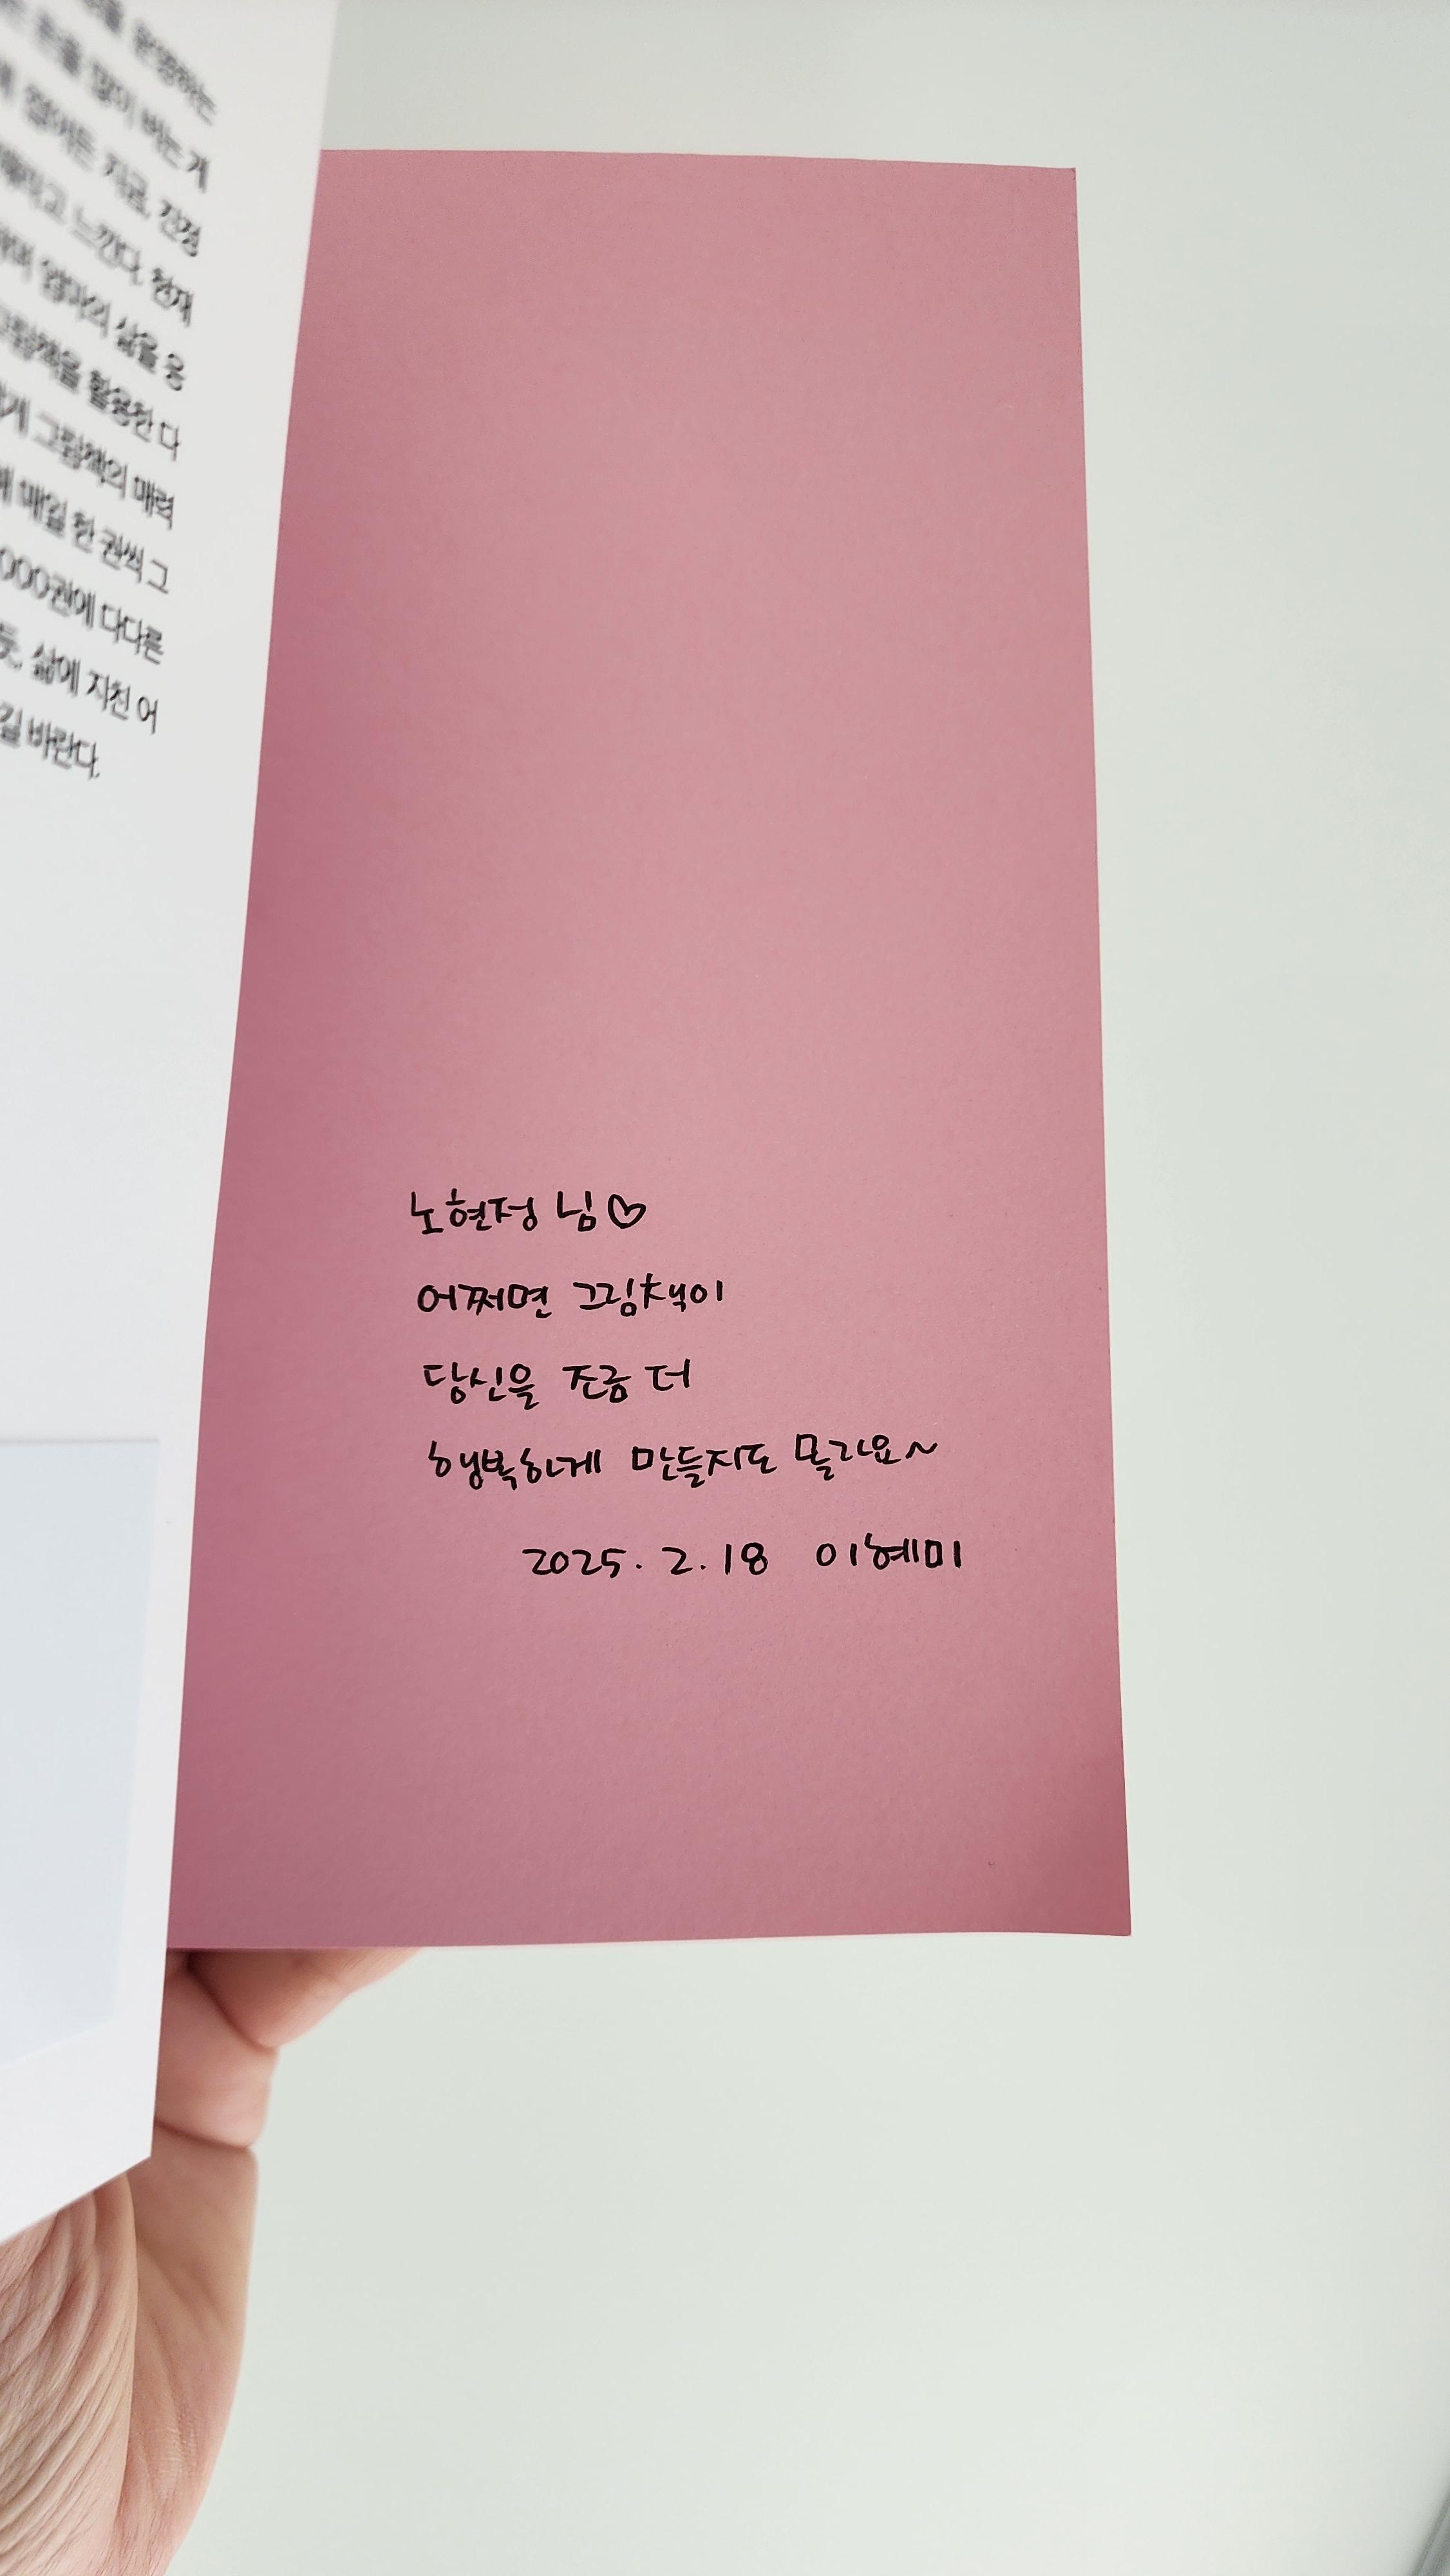 운영하는
돈을 많이 버는 게
열어둔 지금, 진정
느낀다. 현재
엄마의 삶을 응
그림책을 활용한 다
그림책의 매력
매일 한 권씩 그
000권에 다다른
듯, 삶에 지친 어
길 바란다.
노현정 님♡
어쩌면 그림책이
당신을 조금 더
행복하게 만들지도 몰라요~
2025. 2. 18 이혜미